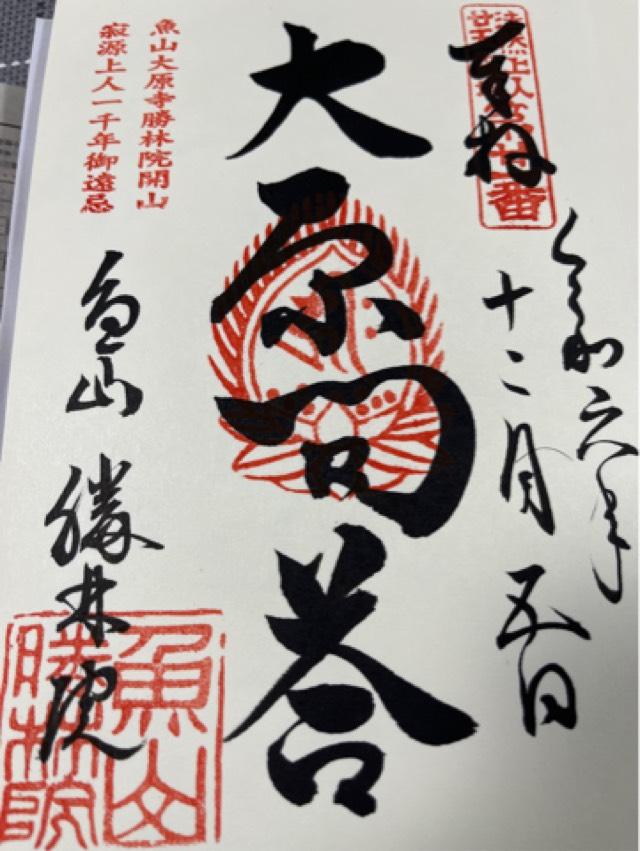 奉拝
法然上人
廿五霊場
廿一番
令和六年
十二月五日
大原問答
魚山大原寺勝林院開山
寂源上人一千年御遠忌
魚山 勝林院
魚山
勝林院